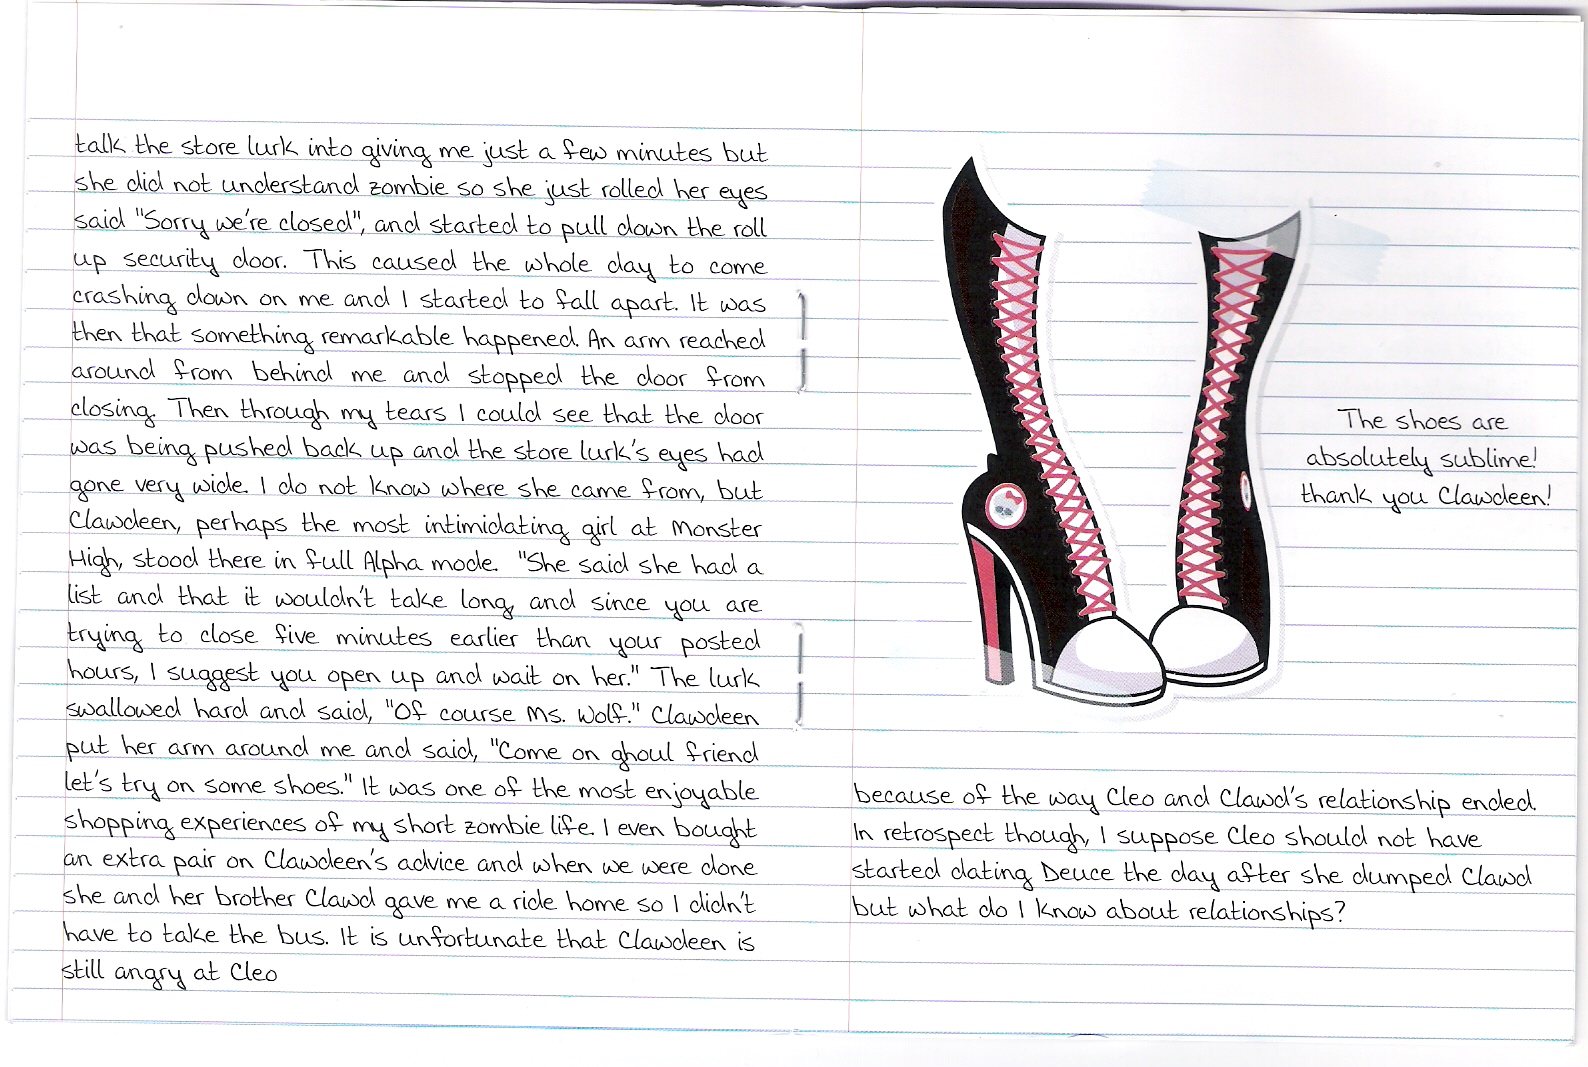 talk the store lurk into giving me just a few minutes but
she did not understand zombie so she just rolled her eyes
said "Sorry we're closed", and started to pull down the roll
up security door. This caused the whole day to come
crashing down on me and I started to fall apart. It was
then that something remarkable happened. An arm reached
around from behind me and stopped the door from
closing. Then through my tears I could see that the door
was being pushed back up and the store lurk's eyes had
gone very wide. I do not know where she came from, but
Clawdeen, perhaps the most intimidating girl at Monster
High, stood there in full Alpha mode. "She said she had a
list and that it wouldn't take long, and since you are
trying to close five minutes earlier than your posted
hours, I suggest you open up and wait on her." The lurk
swallowed hard and said, "Of course Ms. Wolf." Clawdeen
put her arm around me and said, "Come on ghoul friend
let's try on some shoes." It was one of the most enjoyable
shopping experiences of my short zombie life. I even bought
an extra pair on Clawdeen's advice and when we were done
she and her brother Clawd gave me a ride home so I didn't
have to take the bus. It is unfortunate that Clawdeen is
still angry at Cleo
The shoes are
absolutely sublime!
thank you Clawdeen!
because of the way Cleo and Clawd's relationship ended.
In retrospect though, I suppose Cleo should not have
started dating Deuce the day after she dumped Clawd
but what do I know about relationships?